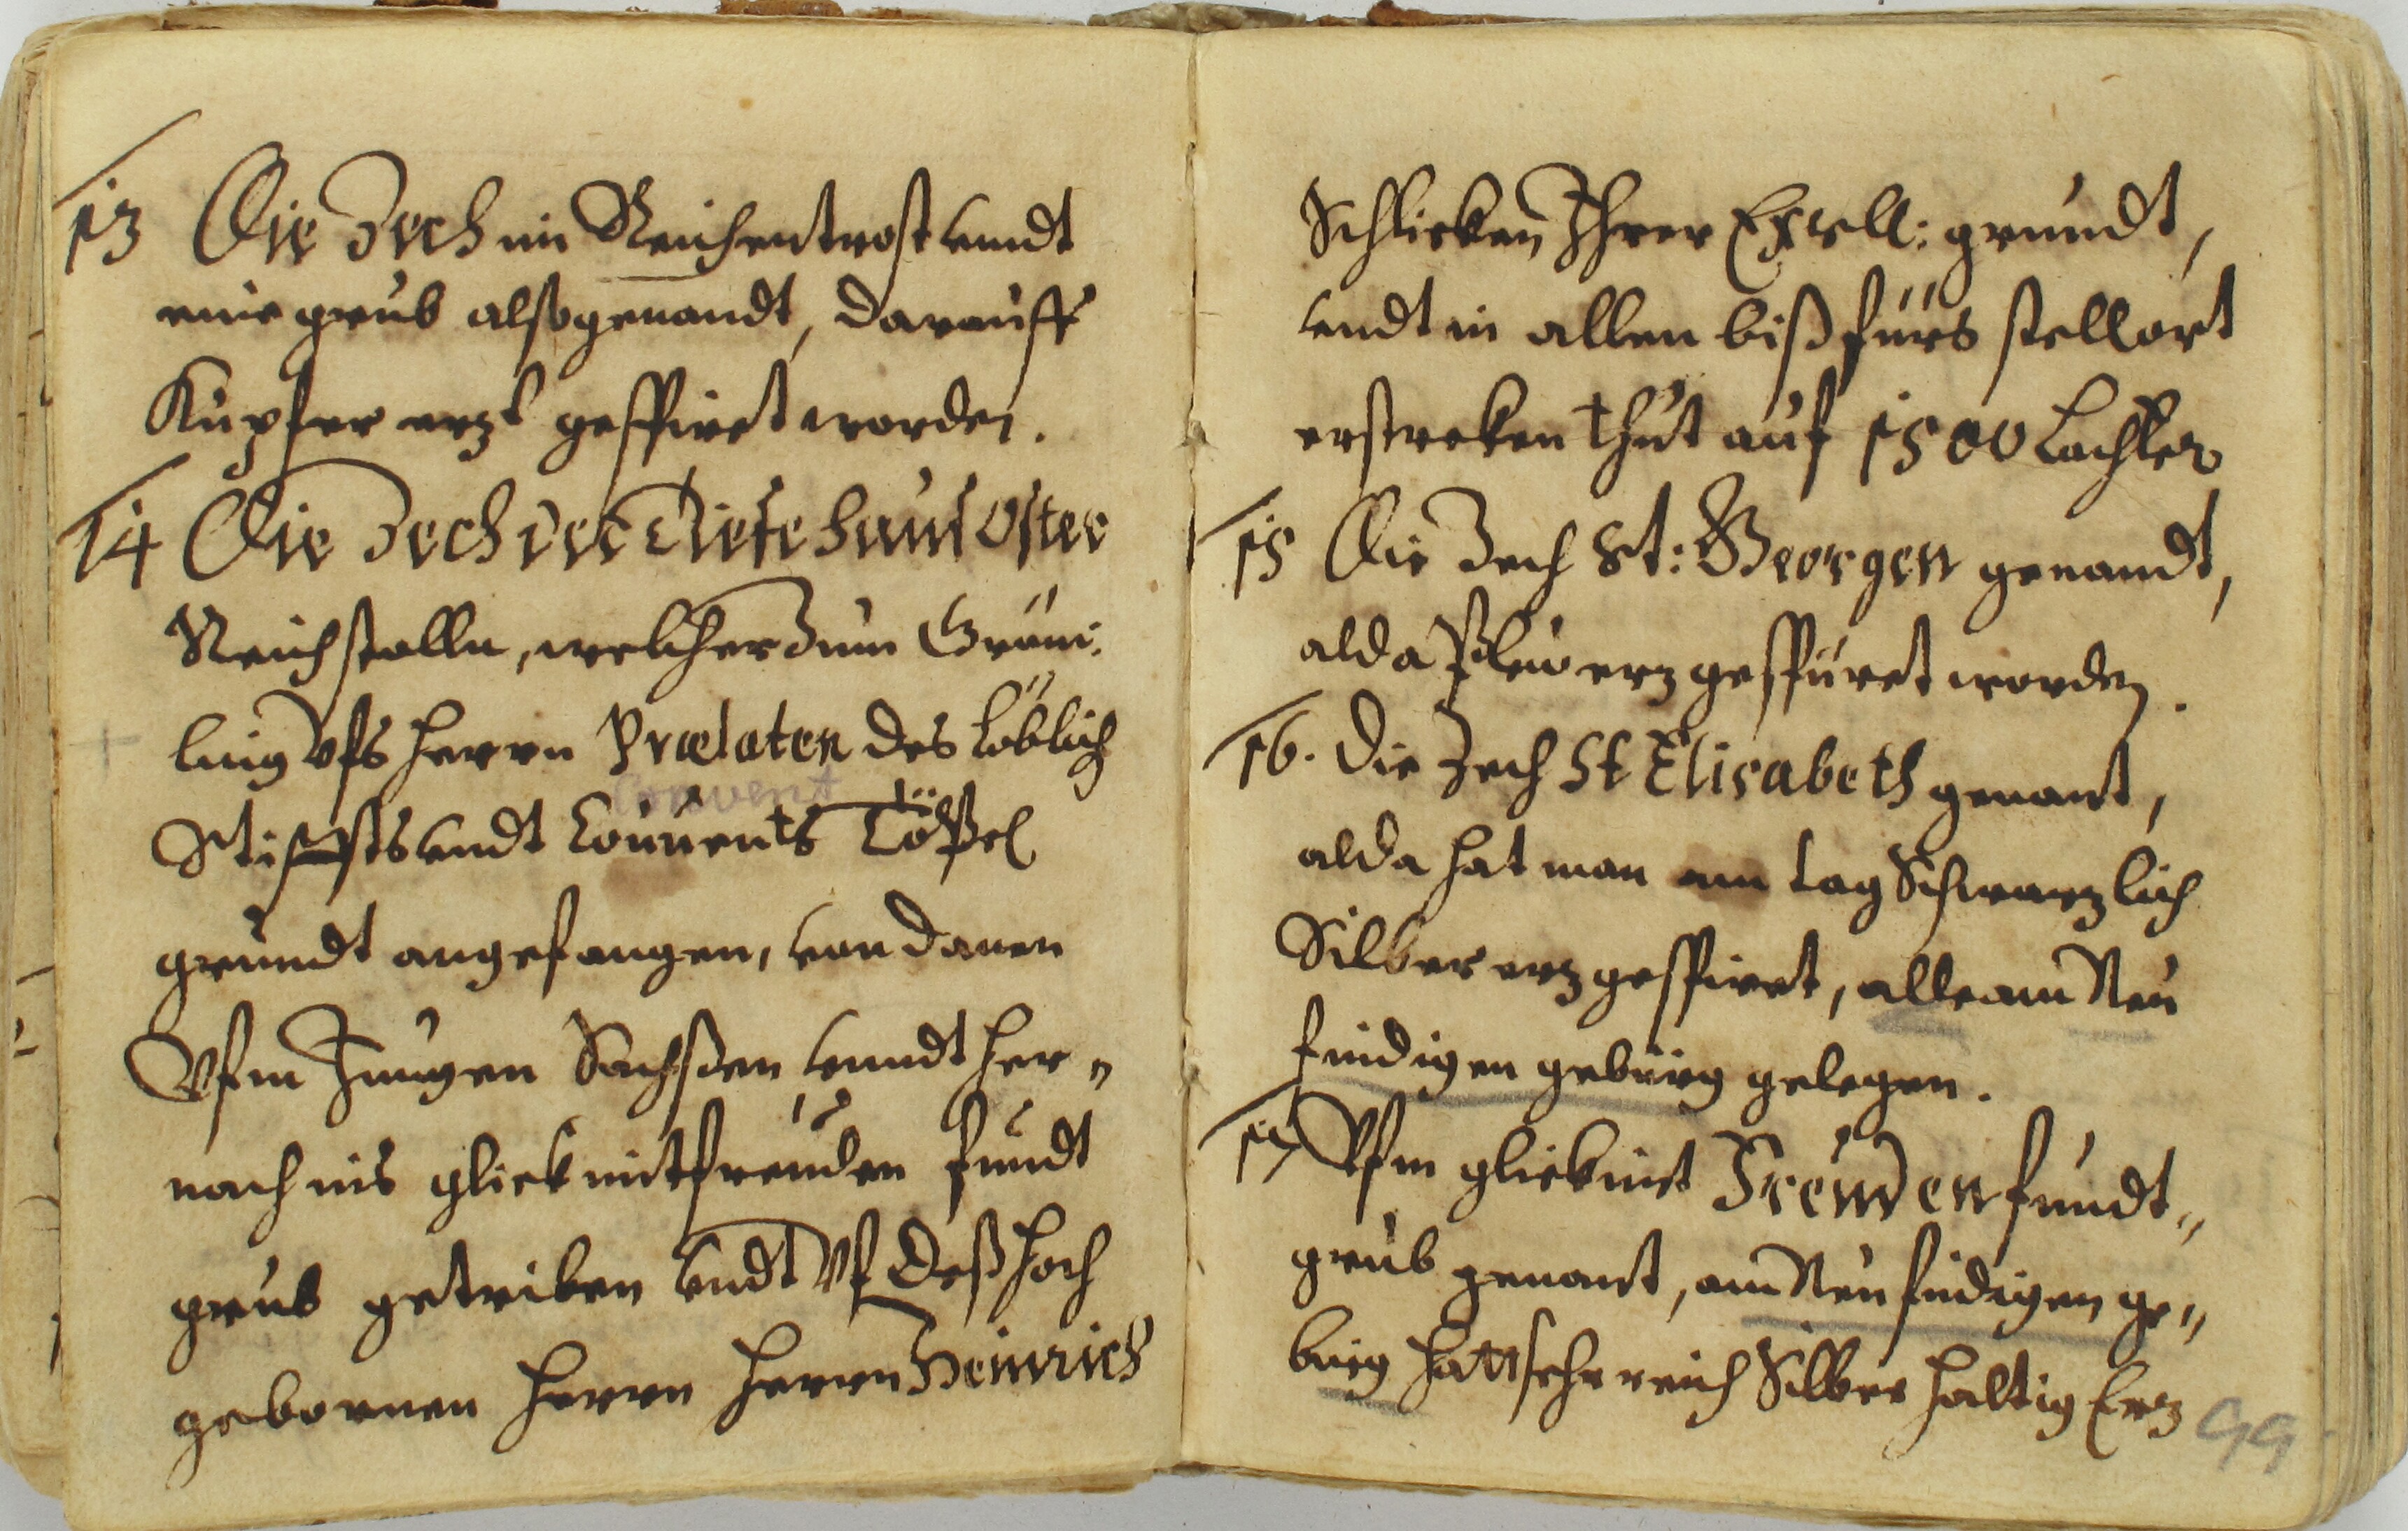 13 Die Zech im Reichentrost vnndt
eine grub alsogenandt, darauff
Kupfer erzt gespiret worden.
14 Die Zech der Tiefe hauß Oster
Reichstolln, welcher zum Gräni-
ling vfs Herrn Prælaten des Löblich
Convent
Stiffts vndt Conuents Töpel
grundt angefangen, von danen
Vfm Jungen Sachßen vnndt her„
nach ins gliek mitfreuden fundt
grub getriben vndt Vf Deß hoch
gebornen Herrn Herrn Heinrich
Schlieken Ihrer Excell: grundt,
vndt in allen biß fürs stellort
erstreken thut auf 1500 Lachter
15 Die Zech St: Georgen genandt,
alda Pleÿ erz gespüret worden.
16. Die Zech St Elisabeth genant,
alda hat man am tag Schwarzlich
Silber erz gespiret, alle am Neu
findigen gebürg gelegen.
17 Vfm gliek mit Freuden fundt„
grub genant, am Neufindigen ge„
bürg hatt sehr reich Silber haltig Erz
99